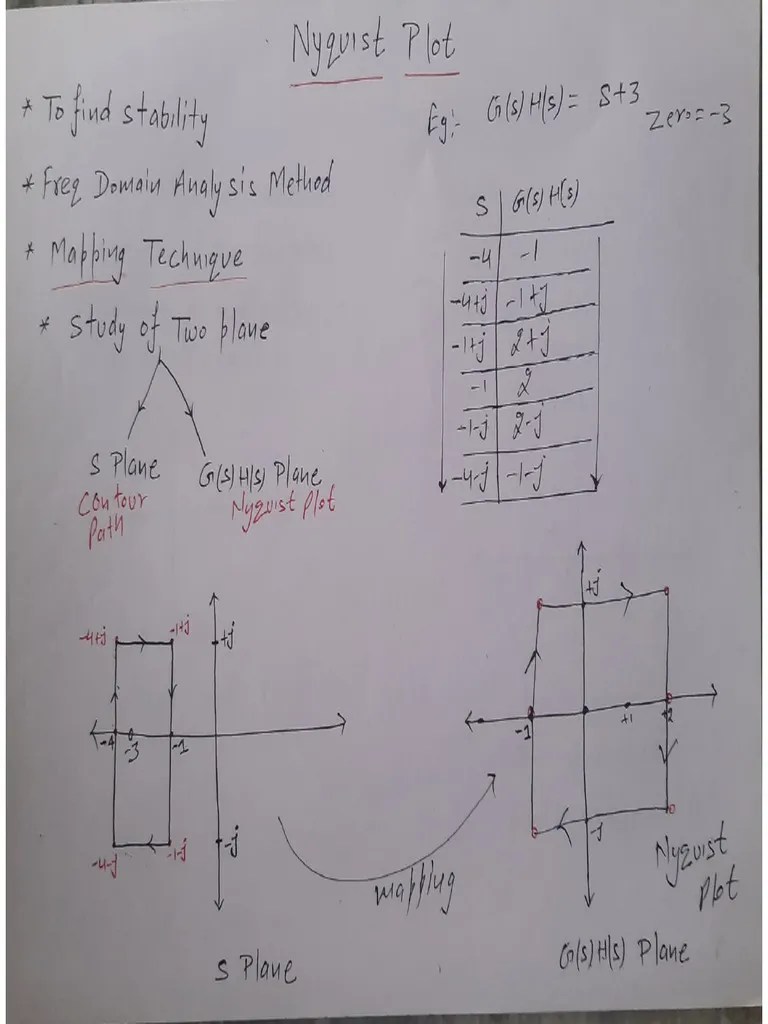 Nyquist Plot
* To find stability
* Freq Domain Analysis Method
* Mapping Technique
* Study of Two plane
S Plane
Contour Path
G(s)H(s) Plane
Nyquist Plot
Eg:- G(s)H(s) = S+3
Zero = -3
S G(s)H(s)
-4 -1
-4+j -1+j
-1+j 2+j
-1 2
-1-j 2-j
-4-j -1-j
-4+j -1+j +j
-4 -3 -1
-4-j -1-j -j
S Plane
mapping
+j
-1 +1 +2
-j
Nyquist Plot
G(s)H(s) Plane